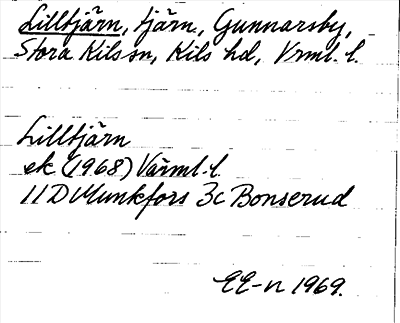 Lilltjärn, tjärn, Gunnarsby,
Stora Kils sn, Kils hd, Vrml. l.
Lilltjärn
ek (1968) Värml. l.
11D Munkfors 3c Bonserud
EE-n 1969.